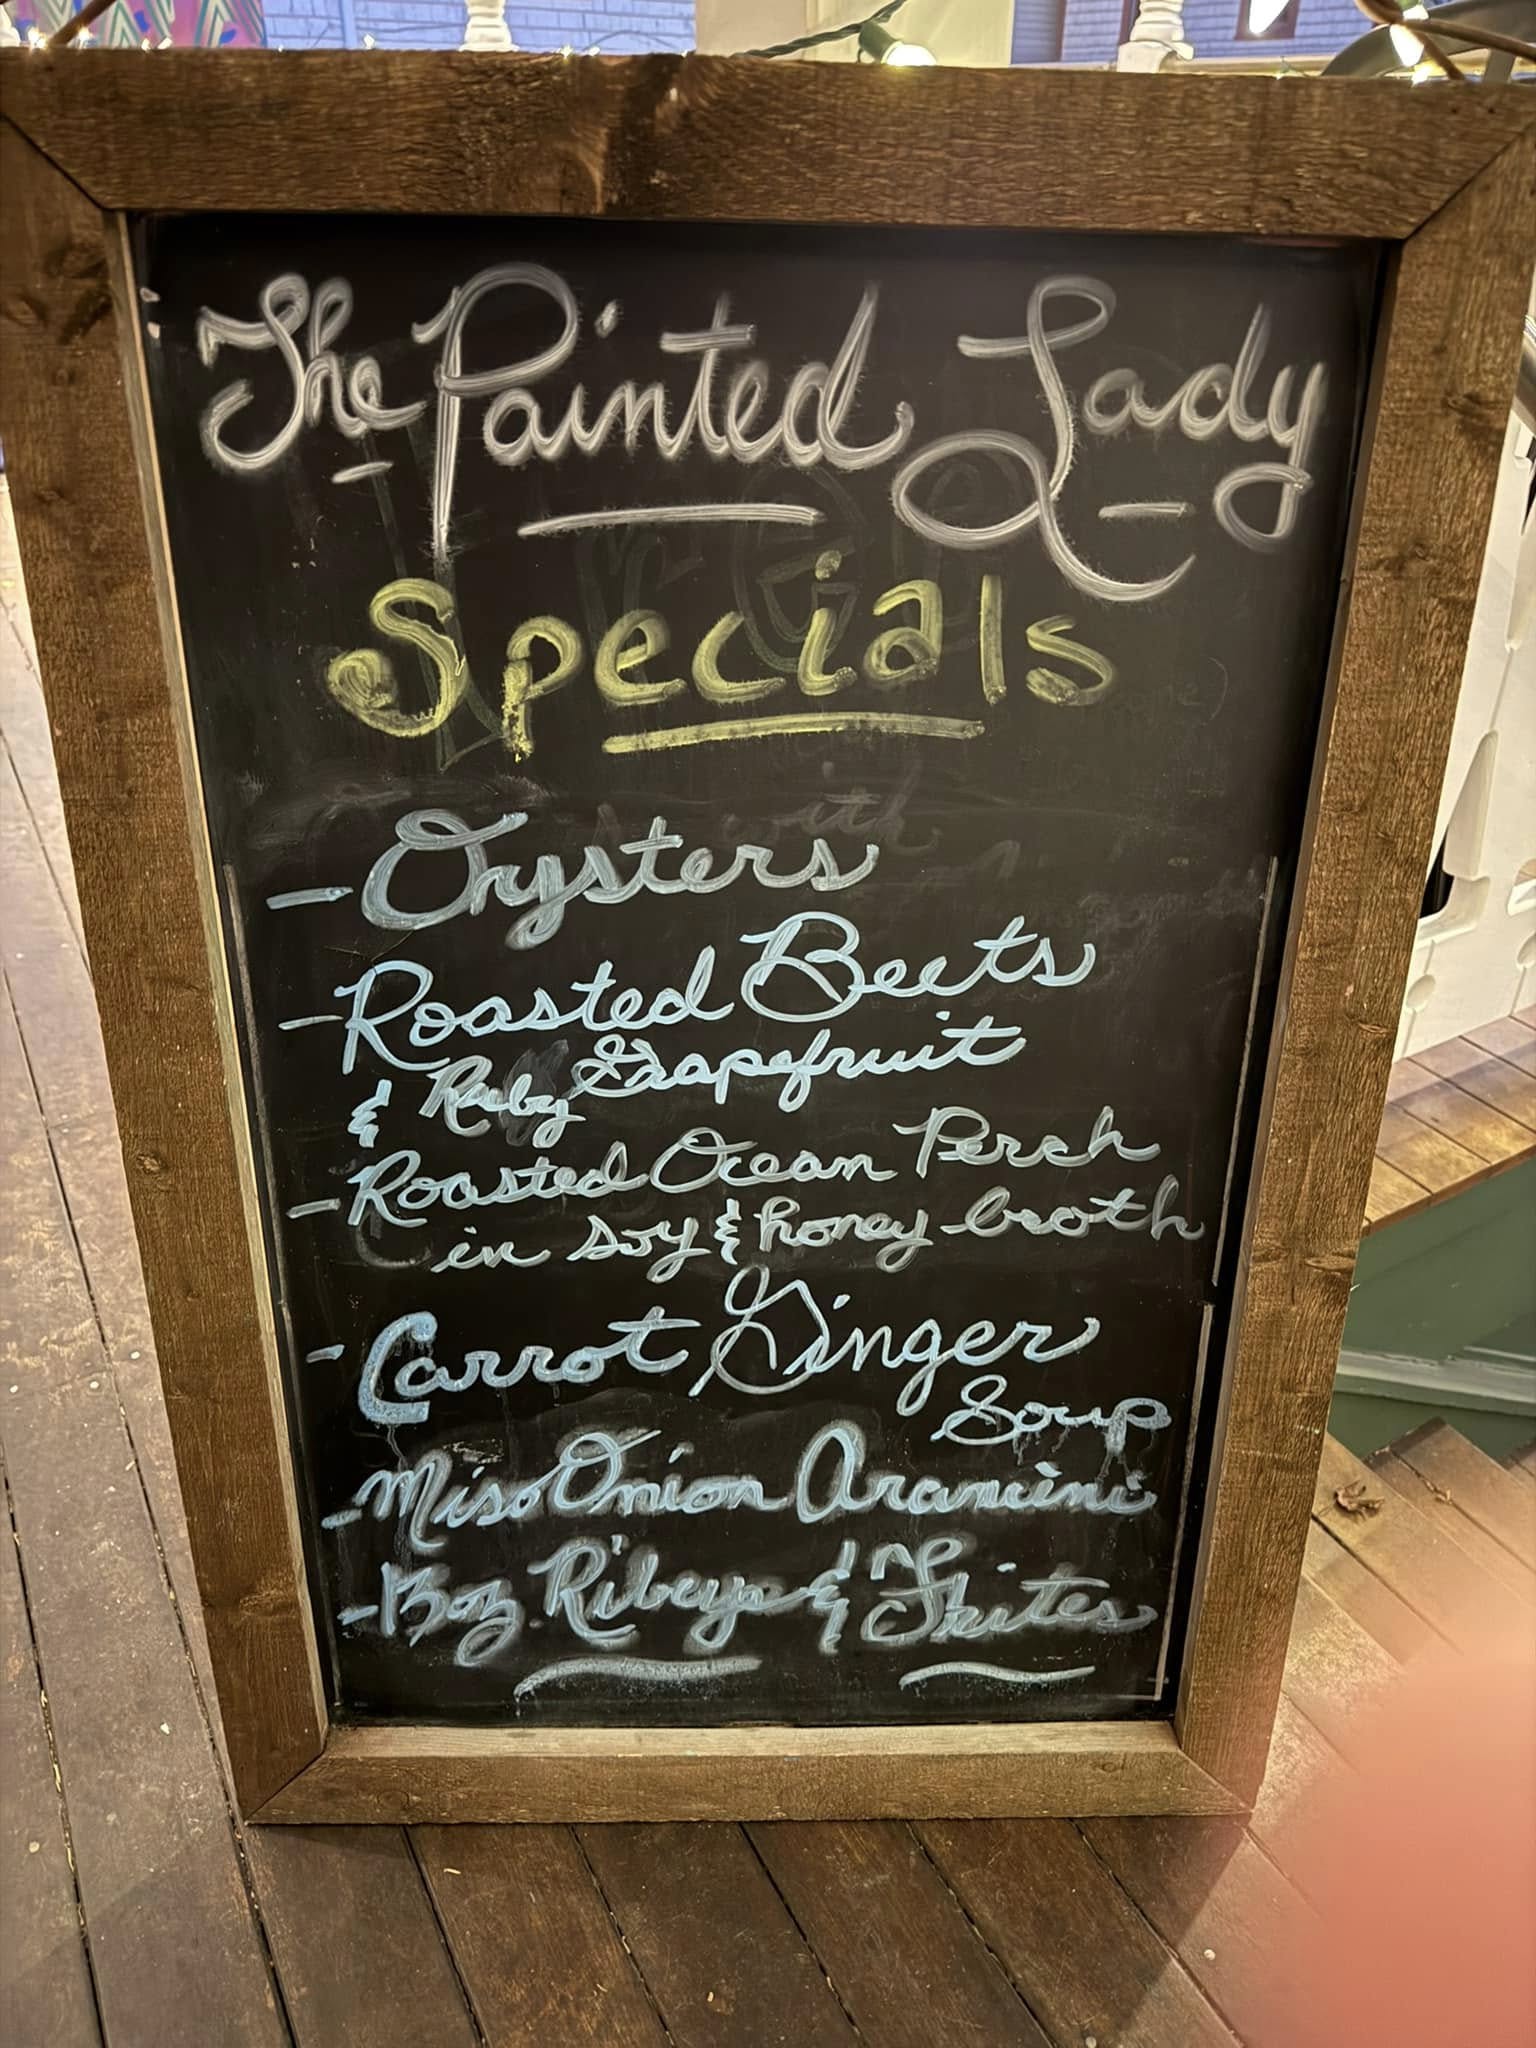 The Painted Lady
Specials
- Oysters
- Roasted Beets
& Ruby Grapefruit
- Roasted Ocean Perch
in soy & honey broth
- Carrot Ginger
Soup
- Miso Onion Arancini
- 8oz. Ribeye & Frites